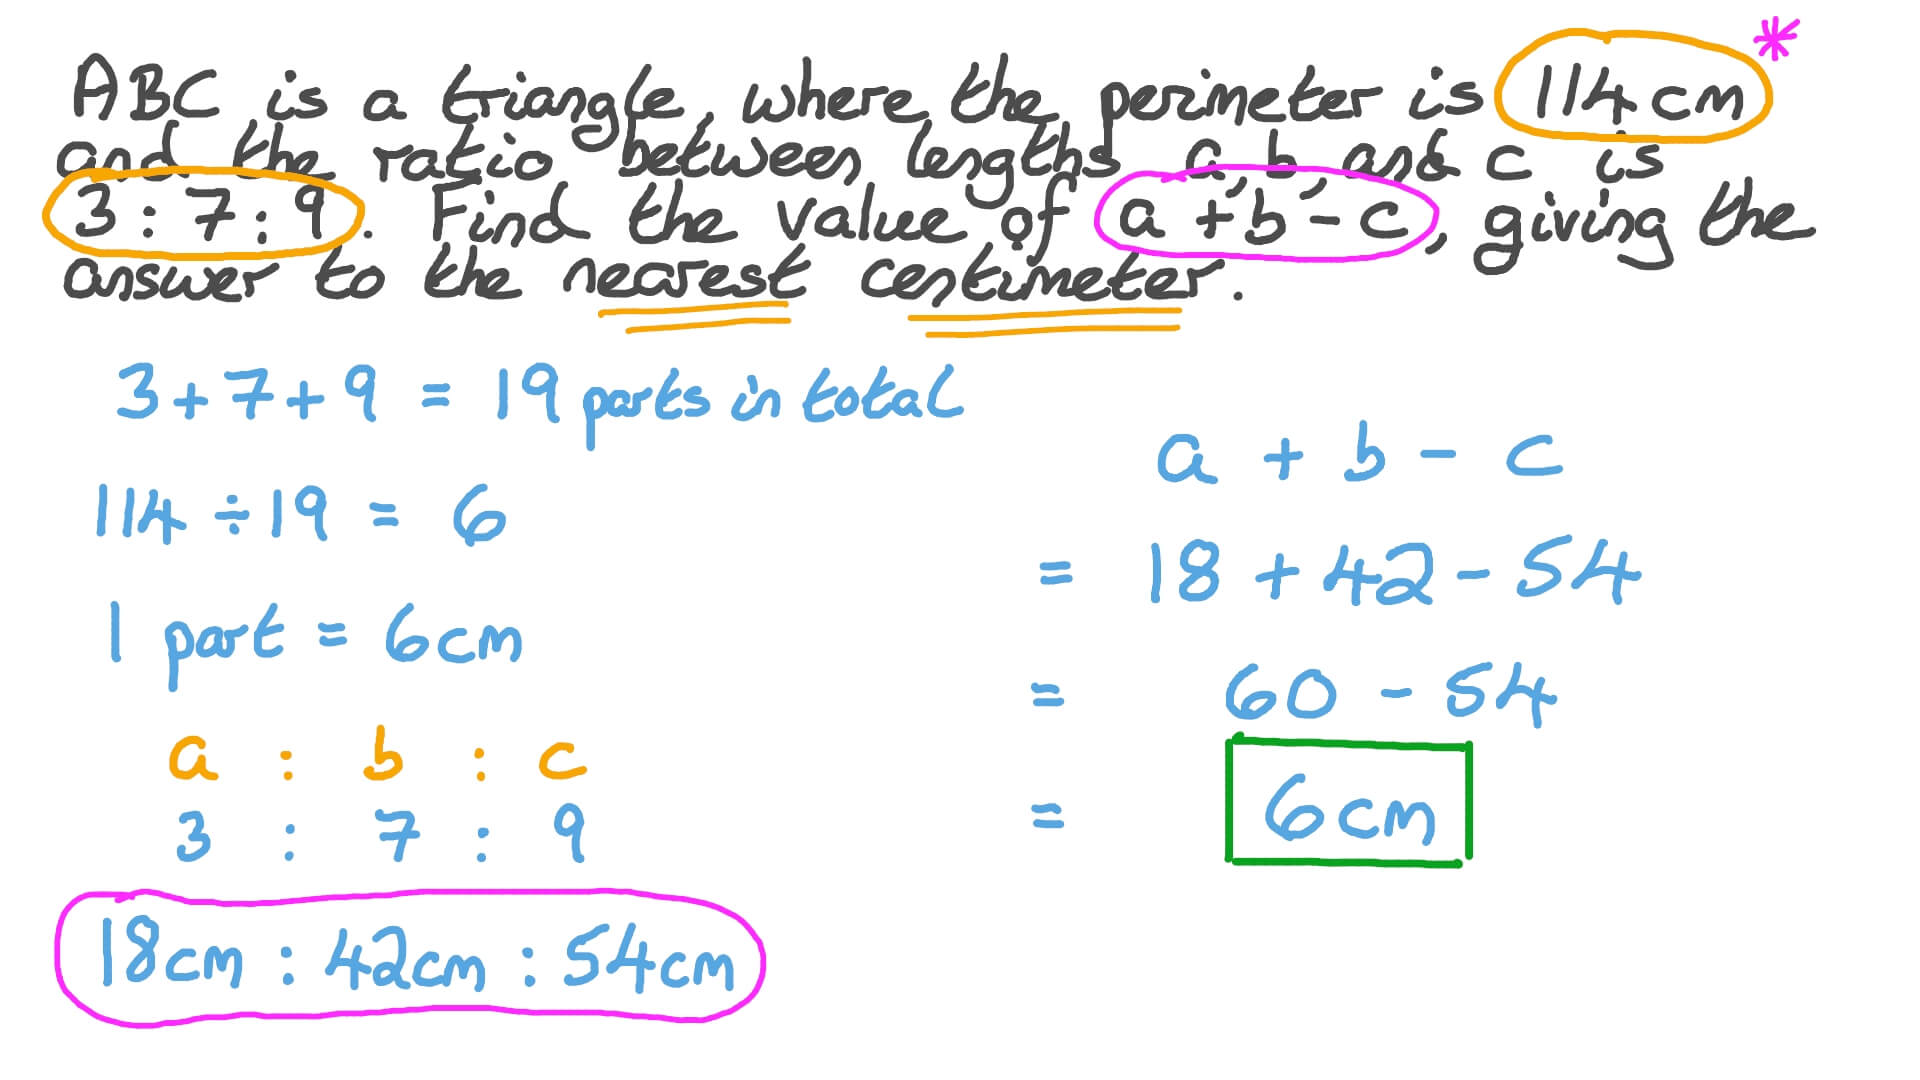 ABC is a triangle, where the perimeter is 114 cm *
and the ratio between lengths a, b, and c is
3 : 7 : 9. Find the value of a + b - c, giving the
answer to the nearest centimeter.
3 + 7 + 9 = 19 parts in total
114 ÷ 19 = 6
1 part = 6cm
a : b : c
3 : 7 : 9
18cm : 42cm : 54cm
a + b - c
= 18 + 42 - 54
= 60 - 54
= 6cm